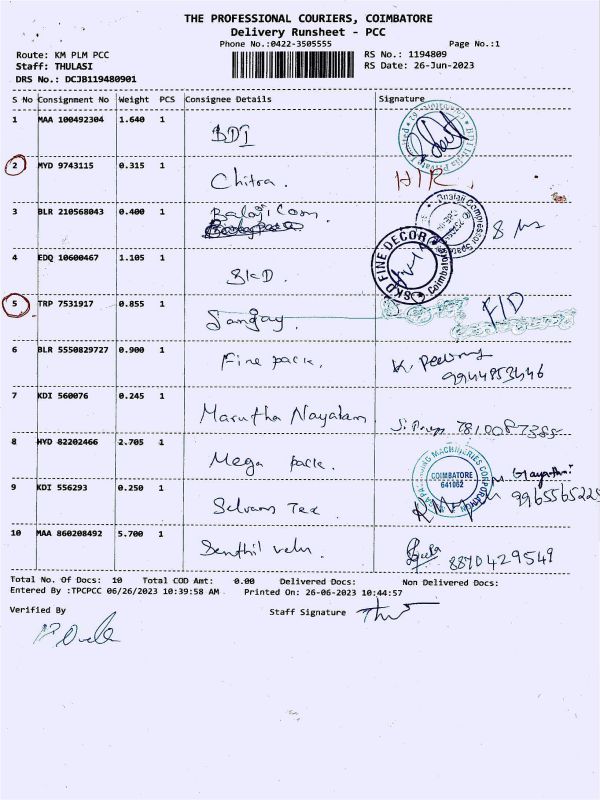 THE PROFESSIONAL COURIERS, COIMBATORE
Delivery Runsheet - PCC
Phone No.:0422-3505555 Page No.:1
Route: KM PLM PCC RS No.: 1194809
Staff: THULASI RS Date: 26-Jun-2023
DRS No.: DCJB119480901
S No Consignment No Weight PCS Consignee Details Signature
1 MAA 100492304 1.640 1 BDI
2 MYD 9743115 0.315 1 Chitra.
3 BLR 210568043 0.400 1 Balaji Com
4 EDQ 10600467 1.105 1 SKD. SKD FINE DECOR Coimbatore
5 TRP 7531917 0.855 1 Sanjay. F/D
6 BLR 5550829727 0.900 1 Fine pack.
9944853446
7 KDI 560076 0.245 1 Marutha Nayakam
8 HYD 82202466 2.705 1 Mega pack. COIMBATORE 641062 Gayathri
9 KDI 556293 0.250 1 Selvam Tex
10 MAA 860208492 5.700 1 Senthil velu. 8870429549
Total No. Of Docs: 10 Total COD Amt: 0.00 Delivered Docs: Non Delivered Docs:
Entered By :TPCPCC 06/26/2023 10:39:58 AM Printed On: 26-06-2023 10:44:57
Verified By Staff Signature